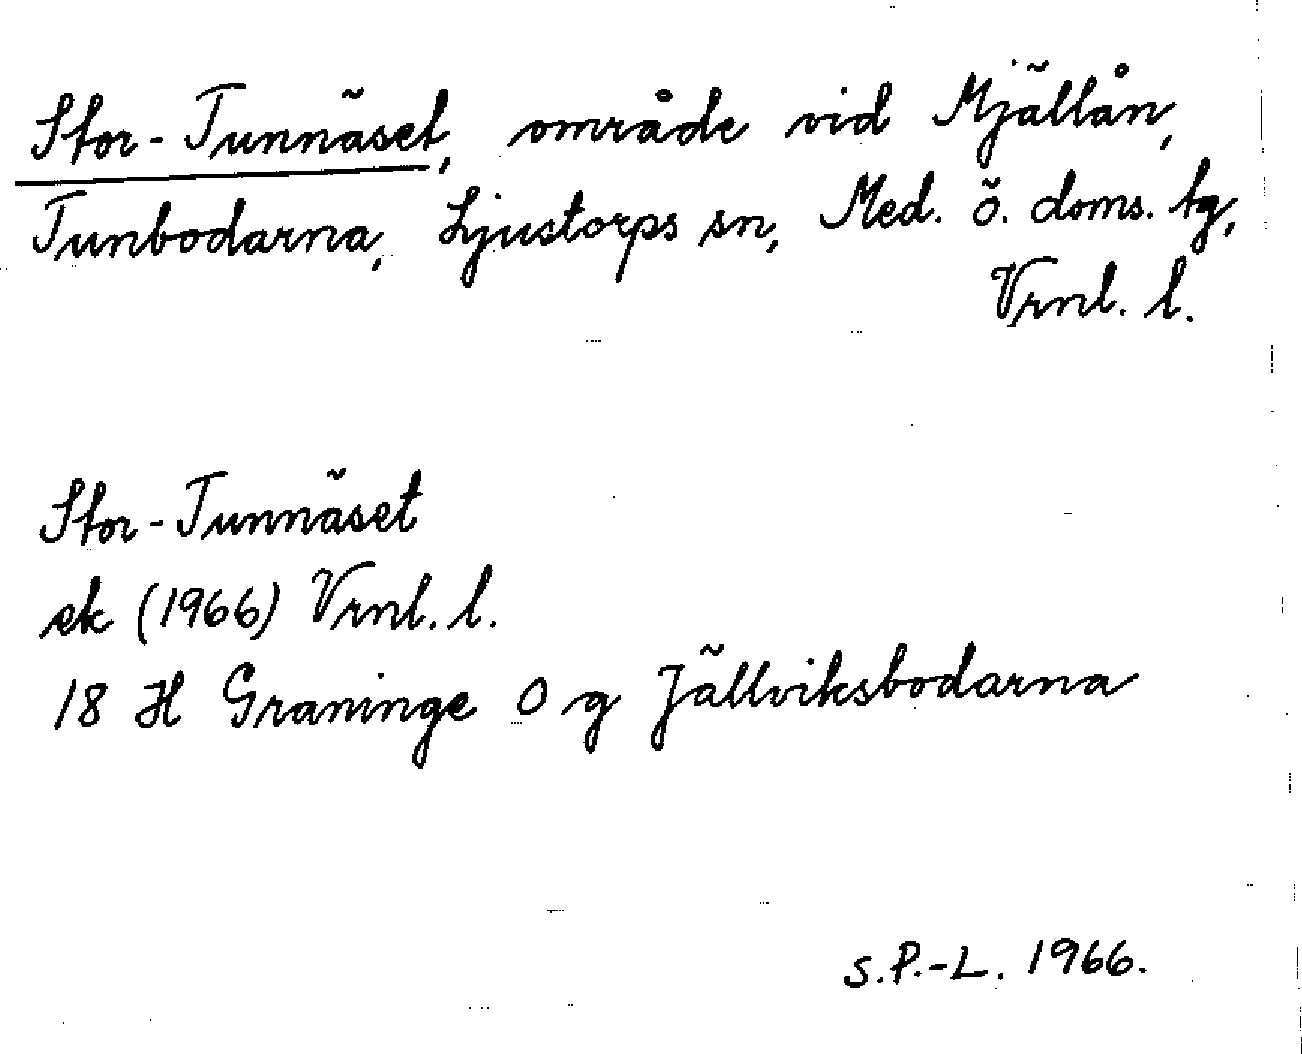 Stor-Tunnäset, område vid Mjällån,
Tunbodarna, Ljustorps sn, Med. ö. doms. tg,
Vrnl. l.
Stor-Tunnäset
ek (1966) Vrnl. l.
18 H Graninge 0 g Jällviksbodarna
S.P.-L. 1966.